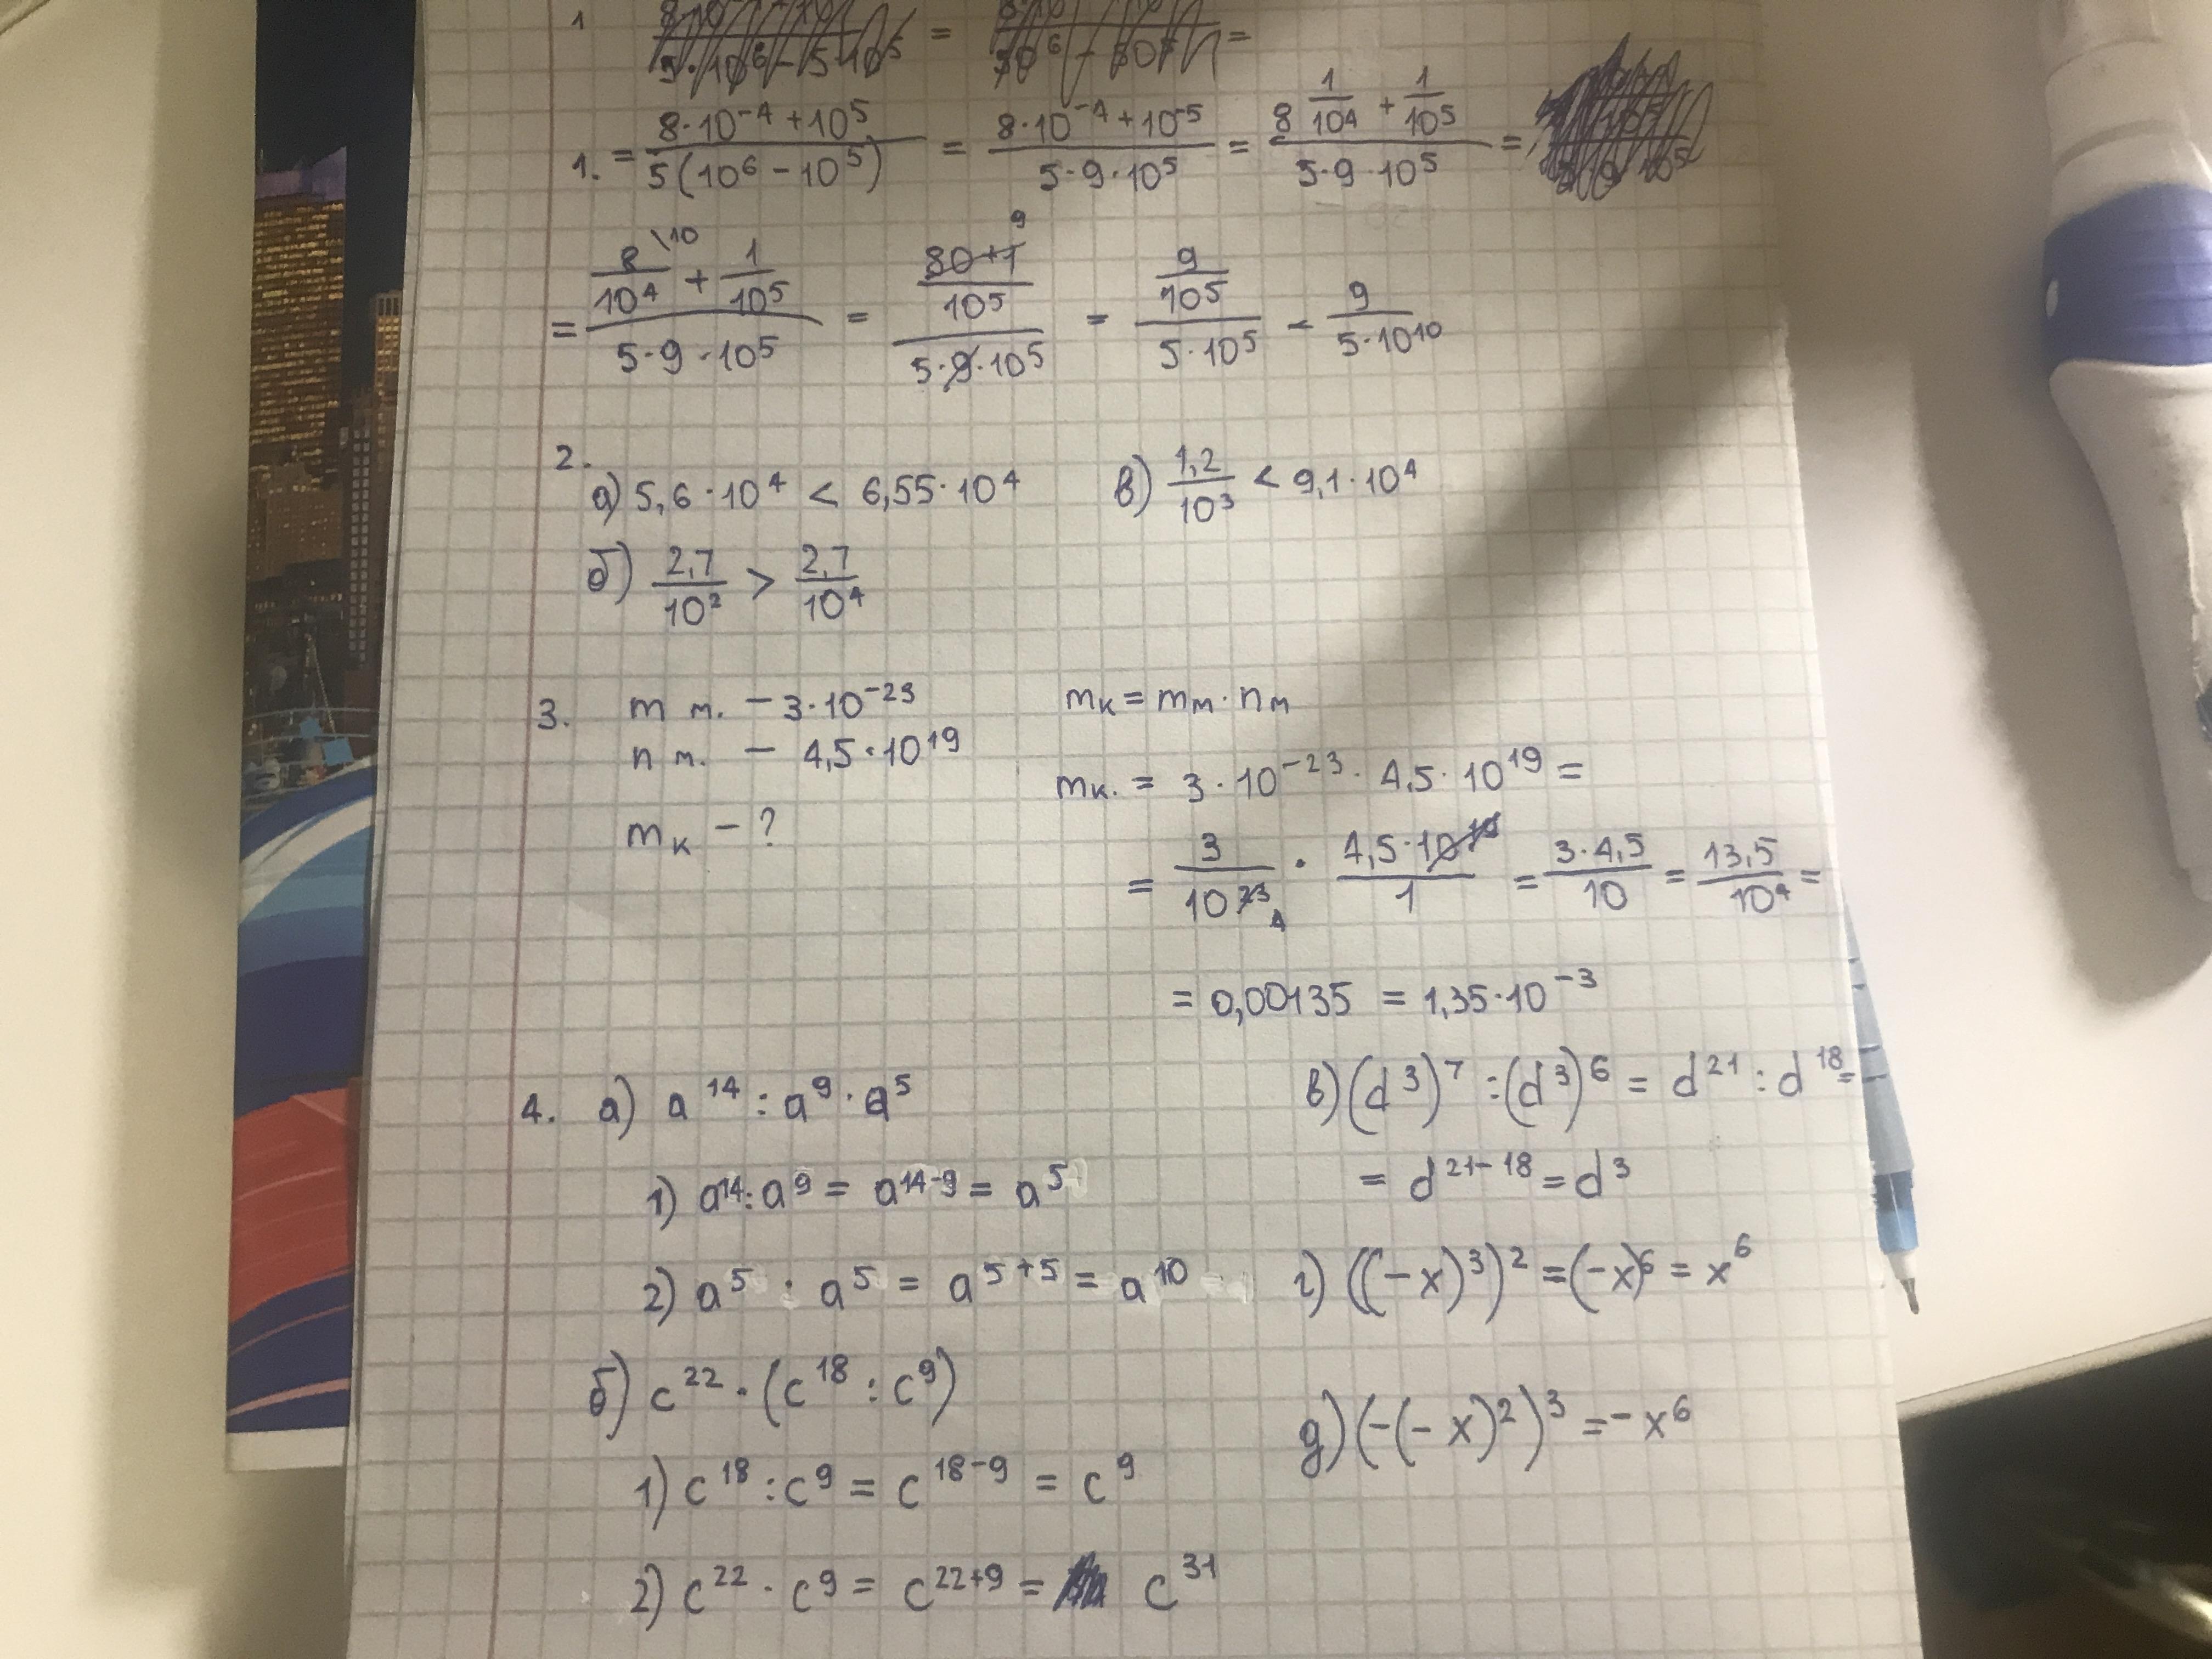 1
5·10⁶ - 5·10⁵ = 50⁶ - 50⁵ =
1. = (8·10⁻⁴ + 10⁵)/(5(10⁶ - 10⁵)) = (8·10⁻⁴ + 10⁻⁵)/(5·9·10⁵) = (8 1/10⁴ + 1/10⁵)/(5·9·10⁵) =
= (8/10⁴ \10 + 1/10⁵)/(5·9·10⁵) = ((80+1)/10⁵ 9)/(5·9·10⁵) = (9/10⁵)/(5·10⁵) = 9/(5·10¹⁰)
2.
а) 5,6·10⁴ < 6,55·10⁴
б) 2,7/10² > 2,7/10⁴
в) 1,2/10³ < 9,1·10⁴
3. m м. - 3·10⁻²³
n м. - 4,5·10¹⁹
mк - ?
mк = mм · nм
mк. = 3·10⁻²³ · 4,5·10¹⁹ =
= 3/10²³ 4 · 4,5·10¹⁹/1 = 3·4,5/10 = 13,5/10⁴ =
= 0,00135 = 1,35·10⁻³
4. а) a¹⁴ : a⁹ · a⁵
1) a¹⁴ : a⁹ = a¹⁴⁻⁹ = a⁵
2) a⁵ : a⁵ = a⁵⁺⁵ = a¹⁰
б) c²² · (c¹⁸ : c⁹)
1) c¹⁸ : c⁹ = c¹⁸⁻⁹ = c⁹
2) c²² · c⁹ = c²²⁺⁹ = c³¹
в) (d³)⁷ : (d³)⁶ = d²¹ : d¹⁸ =
= d²¹⁻¹⁸ = d³
г) ((-x)³)² = (-x)⁶ = x⁶
д) (-(-x)²)³ = -x⁶